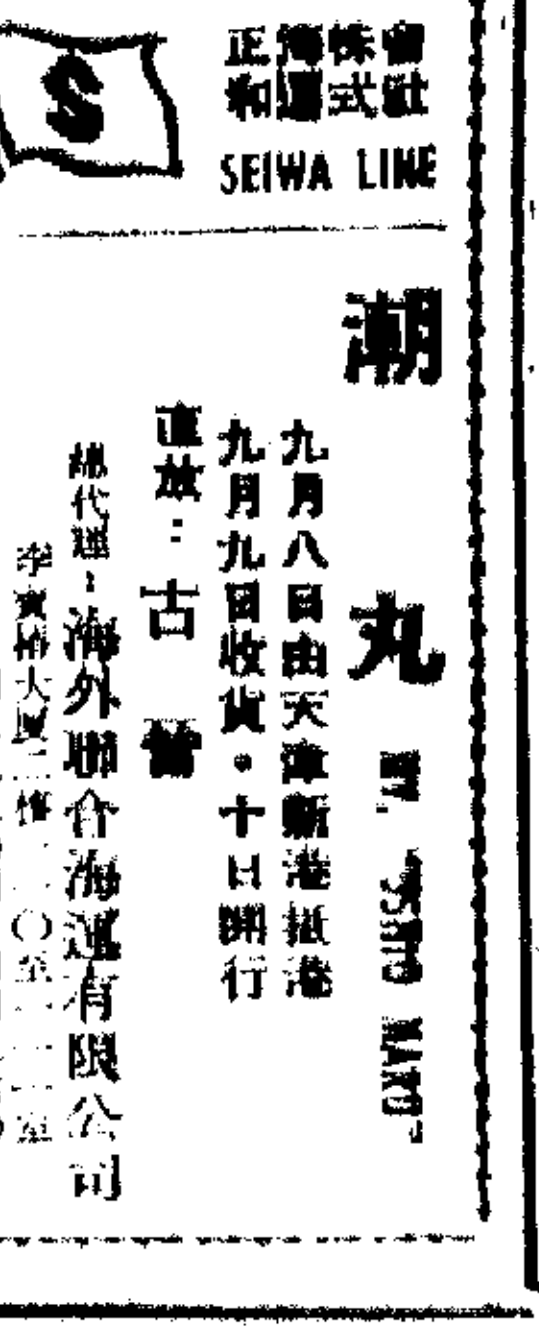 S
正和海運株式會社
SEIWA LINE
潮丸
MV. "USHIO MARU"
九月八日由天津新港抵港
九月九日收貨。十日開行
直放：古晉
總代理：海外聯合海運有限公司
李寶椿大廈二樓